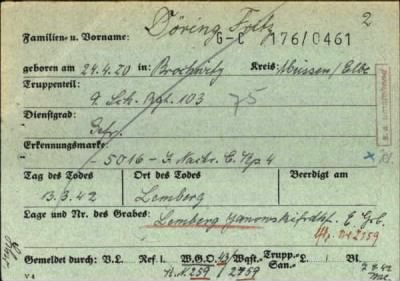 2
Familien- u. Vorname: Döring Fritz
G-C 176/0461
geboren am 24.4.20 in: Brockwitz Kreis: Meissen/Elbe
Truppenteil:
9. Sch. Rgt. 103 75
Dienstgrad:
Gefr.
Erkennungsmarke:
-5016- J. Nachr. E. Kp 4
Tag des Todes Ort des Todes Beerdigt am
13.3.42 Lemberg
Lage und Nr. des Grabes: Lemberg Janowskifrdhf. E Grb.
Nr. 2759
Gemeldet durch: V.L. Ref. L. W.G.O. 43/ Wgst.- Trupp.- L. Bl.
San.-
V 4
N.N. 259 / 2759